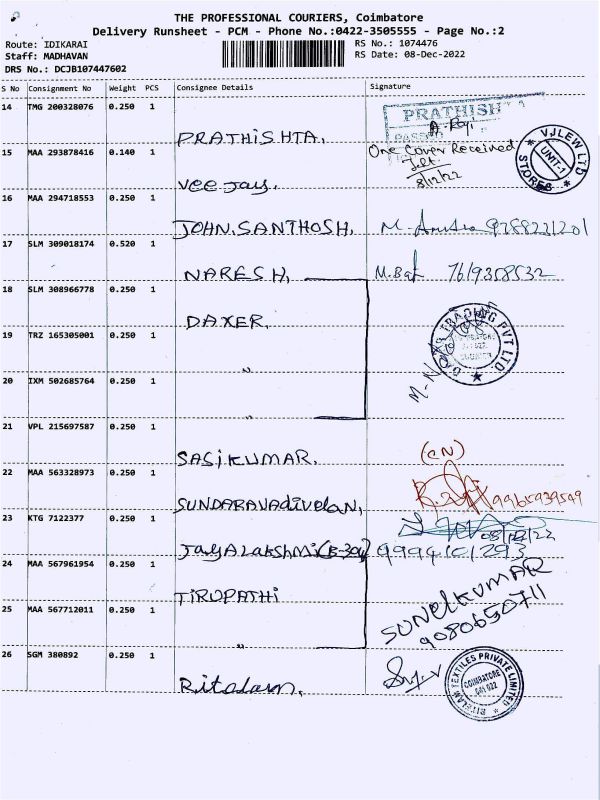 THE PROFESSIONAL COURIERS, Coimbatore
Delivery Runsheet - PCM - Phone No.:0422-3505555 - Page No.:2
Route: IDIKARAI RS No.: 1074476
Staff: MADHAVAN RS Date: 08-Dec-2022
DRS No.: DCJB107447602
S No Consignment No Weight PCS Consignee Details Signature
14 TMG 200328076 0.250 1 PRATHISHTA. PRATHISH
15 MAA 293878416 0.140 1 Vee Jay. One Cover Received
8/12/22
VJLEW LTD UNIT-1 STORES
16 MAA 294718553 0.250 1 JOHN.SANTHOSH, 9788231201
17 SLM 309018174 0.520 1 NARESH, 7619358532
18 SLM 308966778 0.250 1 DAXER.
19 TRZ 165305001 0.250 1 "
TRADING PVT LTD.
20 IXM 502685764 0.250 1 "
21 VPL 215697587 0.250 1 SASIKUMAR. (CN)
22 MAA 563328973 0.250 1 SUNDARAVADIVELAN, 9965939549
08/12/22
23 KTG 7122377 0.250 1 JAYALAKSHMI(B-304) 9994101293
24 MAA 567961954 0.250 1 TIRUPATHI SUNELKUMAR
9080650711
25 MAA 567712011 0.250 1 "
26 SGM 380892 0.250 1 Ritelam.
RITELAM TEXTILES PRIVATE LIMITED
COIMBATORE
641 022